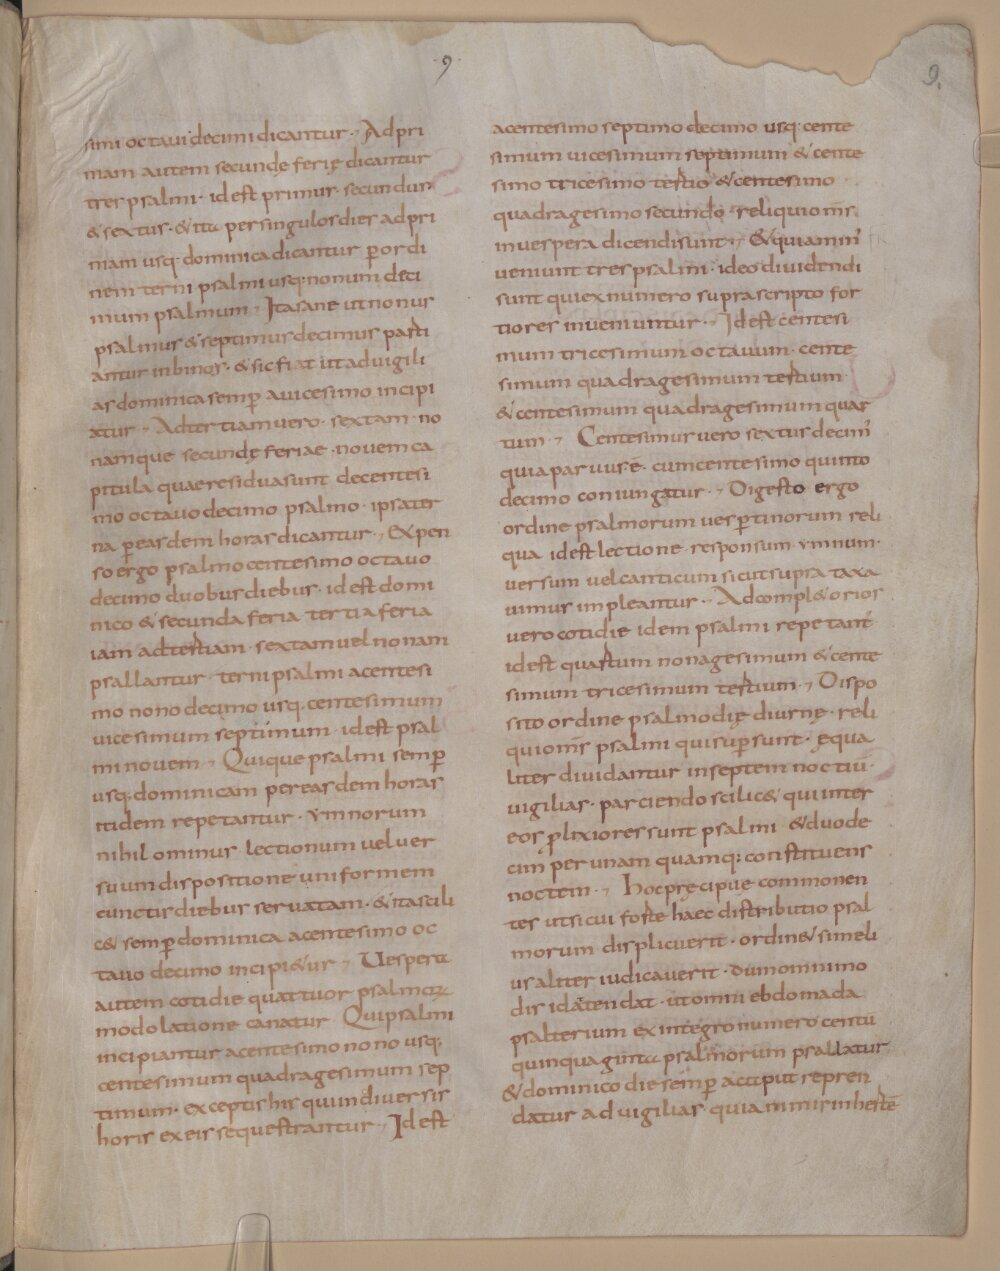 9
9.
simi octaui decimi dicantur · Ad pri
mam autem secunde ferię dicantur
tres psalmi · id est primus · secundus
& sextus · & ita per singulos dies ad pri
mam usq· dominica dicantur p̄ ordi
nem terni psalmi usq· nonum deci
mum psalmum · Ita sane ut nonus
psalmus & septimus decimus parti
antur in binos · & sic fiat ut ad uigili
as dominica semp̄ a uicesimo incipi
atur · Ad tertiam uero · sextam · no
namque secundę feriae · nouem ca
pitula quae residua sunt de centesi
mo octauo decimo psalmo · ipsa ter
na p̄ easdem horas dicantur · Expen
so ergo psalmo centesimo octauo
decimo duobus diebus · id est domi
nico & secunda feria tertia feria
iam ad tertiam · sextam uel nonam
psallantur terni psalmi a centesi
mo nono decimo usq· centesimum
uicesimum septimum · id est psal
mi nouem · Quique psalmi semp̄
usq· dominicam per easdem horas
itidem repetantur · ymnorum
nihilominus lectionum uel uer
suum dispositione uniformem
cunctis diebus seruatam · & ita scili
c& semp̄ dominica a centesimo oc
tauo decimo incipi&ur · Uespera
autem cotidie quattuor psalmoꝝ
modolatione canatur Qui psalmi
incipiantur a centesimo nono usq·
centesimum quadragesimum sep
timum · exceptis his qui in diuersis
horis ex eis sequestrantur · Id est
a centesimo septimo decimo usq· cente
simum uicesimum septimum & cente
simo tricesimo tertio & centesimo
quadragesimo secundo · reliqui om̄s
in uespera dicendi sunt · & quia min̄
ueniunt tres psalmi · ideo diuidendi
sunt qui ex numero suprascripto for
tiores inueniuntur · Id est centesi
mum tricesimum octauum · cente
simum quadragesimum tertium
& centesimum quadragesimum quar
tum · Centesimus uero sextus decim̄
quia paruus · ē · cum centesimo quinto
decimo coniungatur · Digesto ergo
ordine psalmorum uesp̄tinorum reli
qua id est lectione · responsum · ymnum ·
uersum uel canticum sicut supra taxa
uimus impleantur · Ad compl&orios
uero cotidie idem psalmi repetant̄
id est quartum nonagesimum & cente
simum tricesimum tertium · Dispo
sito ordine psalmodię diurnę · reli
qui om̄s psalmi qui sup̄ sunt · ęqua
liter diuidantur in septem noctiū
uigilias · parciendo scilic& qui inter
eos p̄lixiores sunt psalmi & duode
cim̄ per unam quamq· constituens
noctem · Hoc pręcipue commonen
tes ut si cui forte haec distributio psal
morum displicuerit · ordin& si meli
us aliter iudicauerit · dum omnimo
dis id attendat · ut omni ebdomada
psalterium ex integro numero centū
quinquaginta psalmorum psallatur
& dominico die semp̄ a caput repren
datur ad uigilias quia nimis inhertē